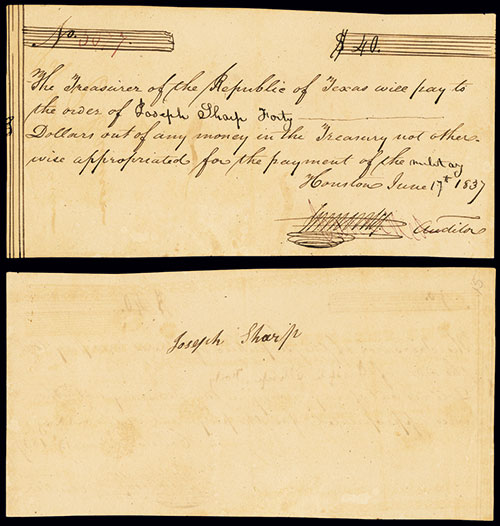 No.
$ 40.
The Treasurer of the Republic of Texas will pay to
the order of Joseph Sharp Forty
Dollars out of any money in the Treasury not other-
wise appropriated for the payment of the military
Houston June 17th 1837
Auditor
Joseph Sharp